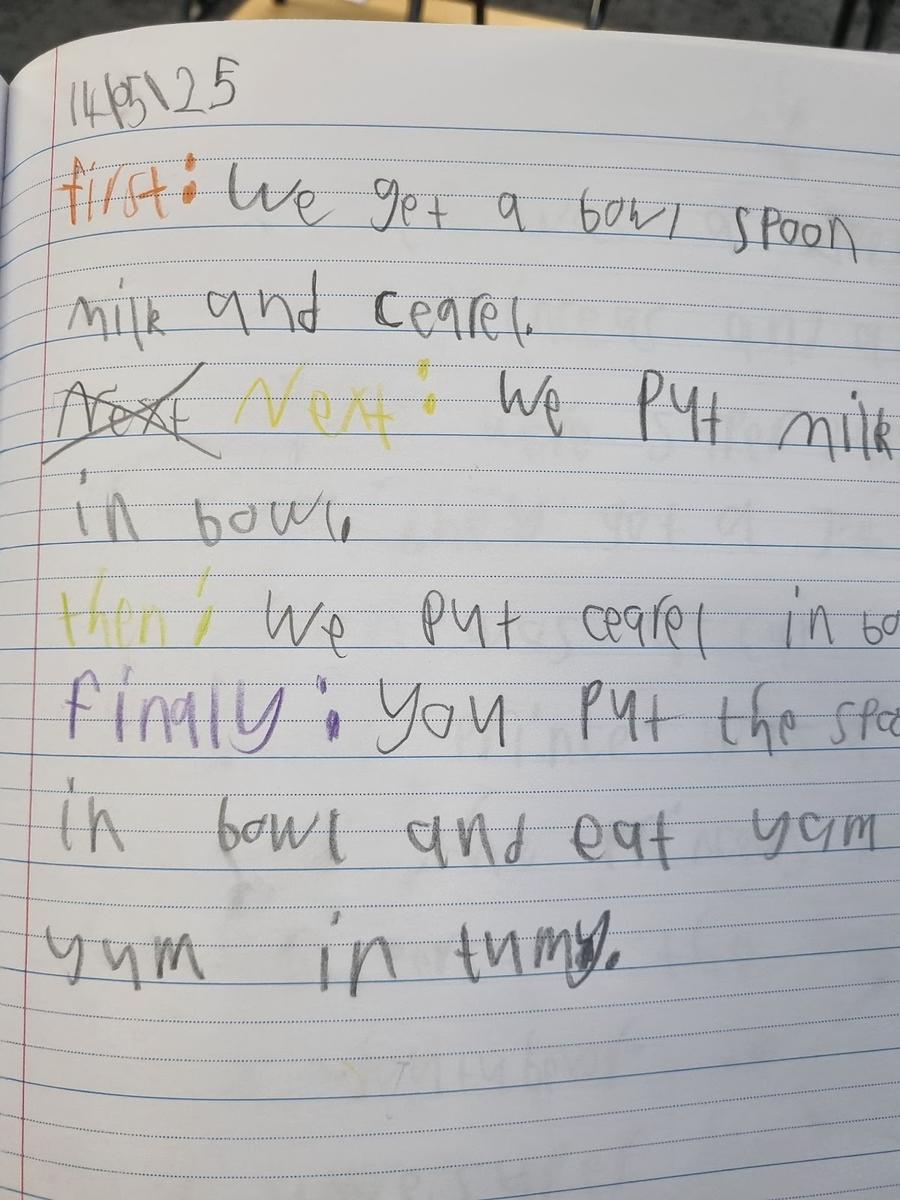 14/05\25
first: We get a bowl spoon
milk and cearel.
Next Next: We put milk
in bowl.
then: We put cearel in bo
finaly: you put the spoo
in bowl and eat yum
yum in tumy.